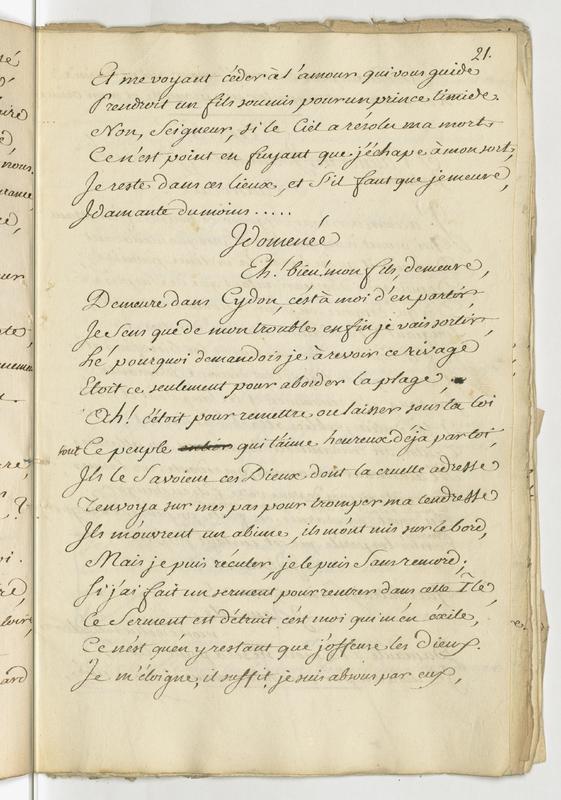 21.
Et me voyant céder à l'amour qui vous guide
Prendroit un fils soumis pour un prince timide.
Non, Seigneur, si le Ciel a résolu ma mort
Ce n'est point en fuyant que j'échape à mon sort,
Je reste dans ces lieux, et s'il faut que je meure,
Idamante du moins .....
Idomenée
Eh! bien! mon fils, demeure,
Demeure dans Cydon, c'est à moi d'en partir,
Je sens que de mon trouble enfin je vais sortir,
hé pourquoi demandois je à revoir ce rivage
Etoit ce seulement pour aborder la plage,
Ah! c'étoit pour remettre ou laisser sous ta loi
tout Ce peuple entier qui t'aime heureux déjà par toi,
Ils le savoient ces Dieux dont la cruelle adresse
T'envoya sur mes pas pour tromper ma tendresse
Ils m'ouvrent un abime, ils m'ont mis sur le bord,
Mais je puis réculer, je le puis sans remord;
Si j'ai fait un serment pour rentrer dans cette Ile,
Ce Serment est détruit c'est moi qui m'en éxile,
Ce n'est qu'en y restant que j'offense les Dieux.
Je m'éloigne, il suffit, je suis absous par eux,